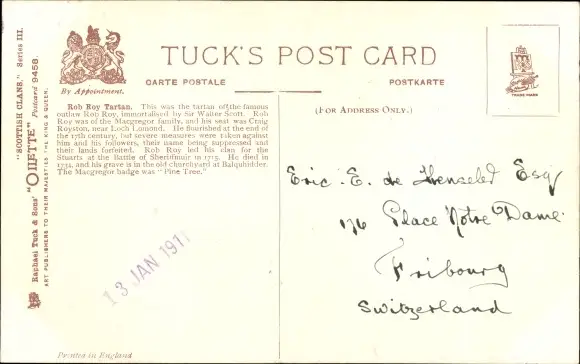 "SCOTTISH CLANS." Series III.
"OILETTE" Postcard 9458.
Raphael Tuck & Sons'
ART PUBLISHERS TO THEIR MAJESTIES THE KING & QUEEN.
By Appointment.
TUCK'S POST CARD
CARTE POSTALE
POSTKARTE
TRADE MARK
Rob Roy Tartan. This was the tartan of the famous
outlaw Rob Roy, immortalised by Sir Walter Scott. Rob
Roy was of the Macgregor family, and his seat was Craig
Royston, near Loch Lomond. He flourished at the end of
the 17th century, but severe measures were taken against
him and his followers, their name being suppressed and
their lands forfeited. Rob Roy led his clan for the
Stuarts at the Battle of Sheriffmuir in 1715. He died in
1734, and his grave is in the old churchyard at Balquhidder.
The Macgregor badge was "Pine Tree."
13 JAN 1911
Printed in England
(FOR ADDRESS ONLY.)
Eric. E. de Henseler Esq
176 Place Notre Dame.
Fribourg
Switzerland